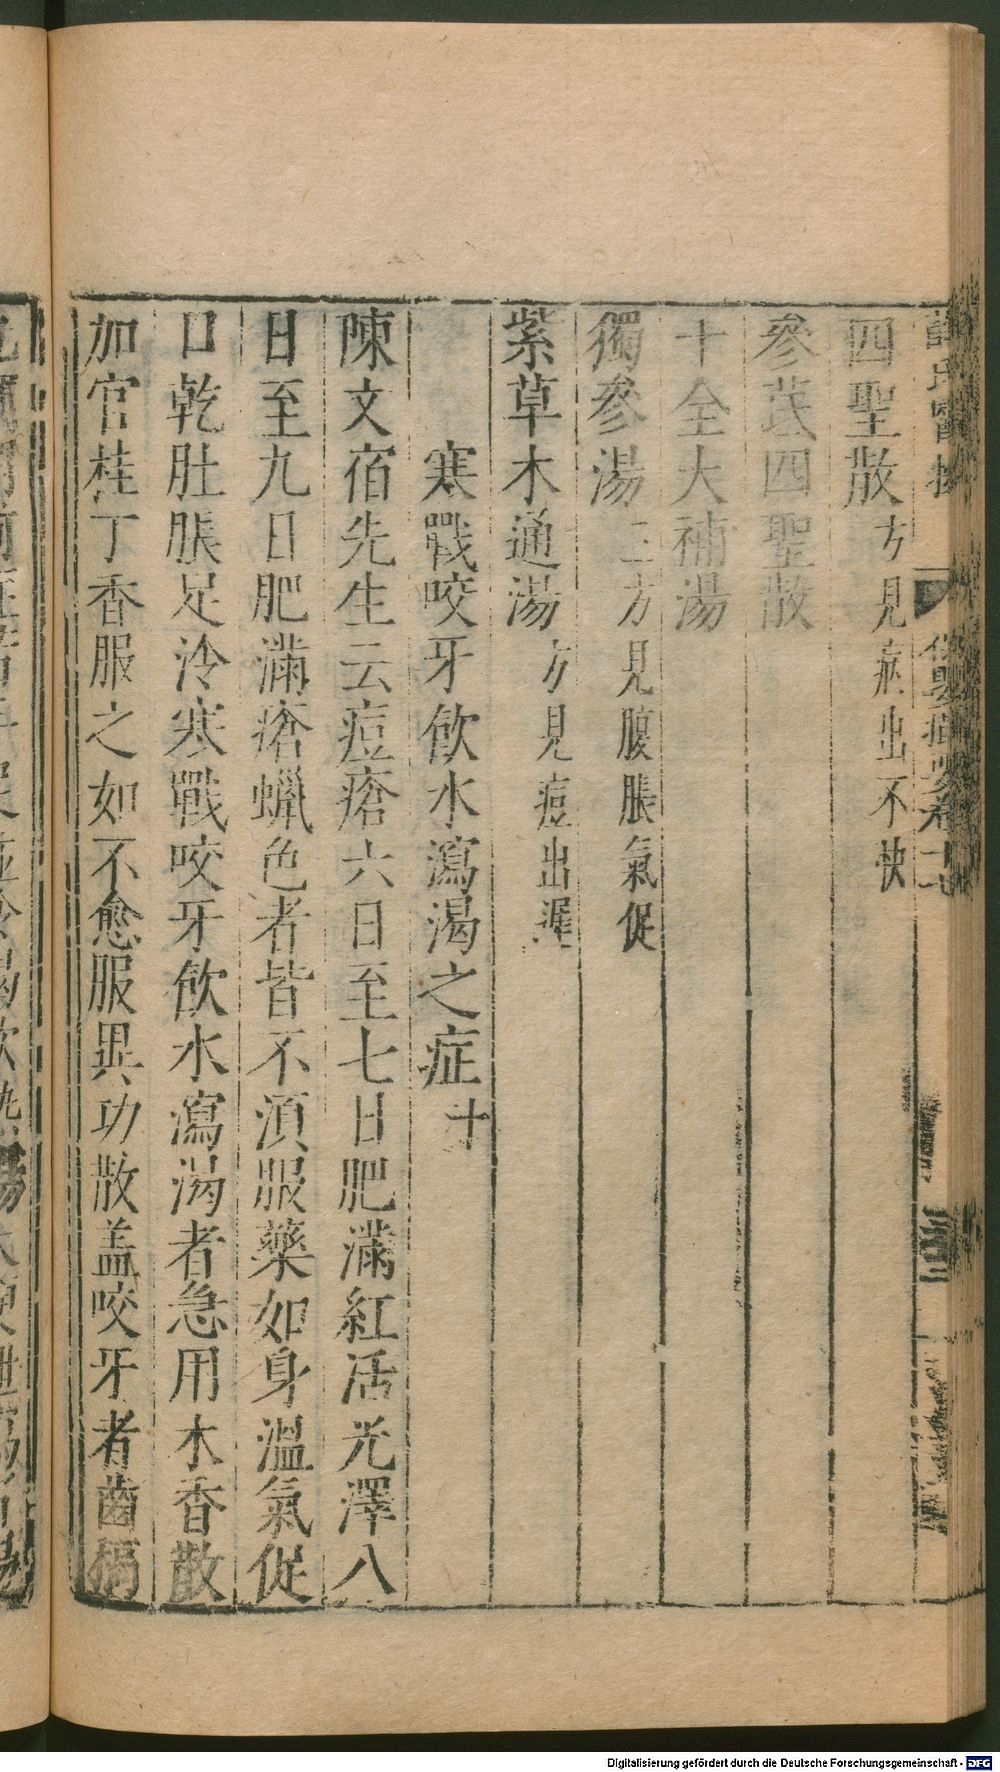 四聖散方見痘出不快
參芪四聖散
十全大補湯
獨參湯三方見腹脹氣促
紫草木通湯方見痘出遲
寒戰咬牙飲水瀉渴之症十
陳文宿先生云痘瘡六日至七日肥滿紅活光澤八
日至九日肥滿瘡蠟色者皆不湏服藥如身溫氣促
口乾肚脹足冷寒戰咬牙飲水瀉渴者急用木香散
加官桂丁香服之如不愈服異功散盖咬牙者齒槁
Digitalisierung gefördert durch die Deutsche Forschungsgemeinschaft - DFG